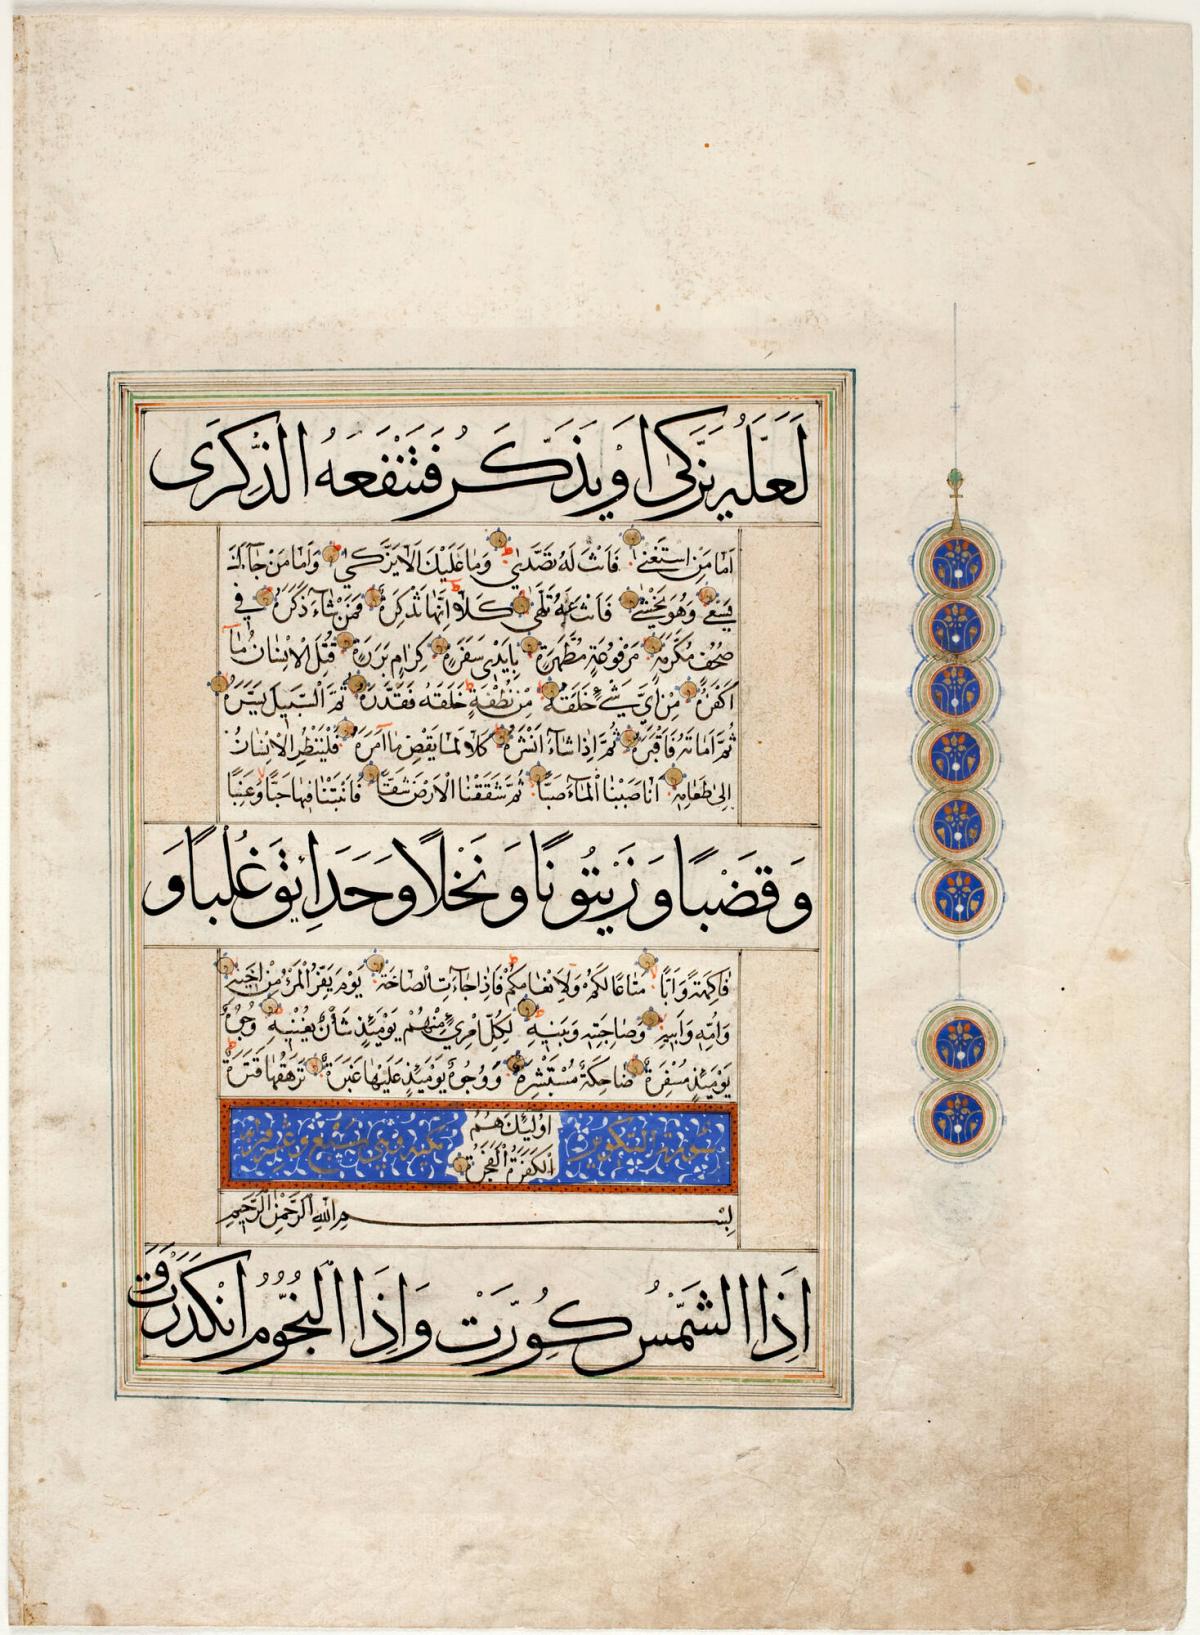 لَعَلَّهُ يَزَّكَّىٰ اَوْ يَذَّكَّرُ فَتَنْفَعَهُ الذِّكْرَى
اَمَّا مَنِ اسْتَغْنٰى فَاَنْتَ لَهُ تَصَدّٰى وَمَا عَلَيْكَ اَلَّا يَزَّكّٰى وَاَمَّا مَنْ جَآءَكَ
يَسْعٰى وَهُوَ يَخْشٰى فَاَنْتَ عَنْهُ تَلَهّٰى كَلَّا اِنَّهَا تَذْكِرَةٌ فَمَنْ شَآءَ ذَكَرَهُ فِي
صُحُفٍ مُكَرَّمَةٍ مَرْفُوعَةٍ مُطَهَّرَةٍ بِاَيْدِي سَفَرَةٍ كِرَامٍ بَرَرَةٍ قُتِلَ الْاِنْسَانُ مَآ
اَكْفَرَهُ مِنْ اَيِّ شَيْءٍ خَلَقَهُ مِنْ نُطْفَةٍ خَلَقَهُ فَقَدَّرَهُ ثُمَّ السَّبِيلَ يَسَّرَهُ
ثُمَّ اَمَاتَهُ فَاَقْبَرَهُ ثُمَّ اِذَا شَآءَ اَنْشَرَهُ كَلَّا لَمَّا يَقْضِ مَآ اَمَرَهُ فَلْيَنْظُرِ الْاِنْسَانُ
اِلٰى طَعَامِهِ اَنَّا صَبَبْنَا الْمَآءَ صَبًّا ثُمَّ شَقَقْنَا الْاَرْضَ شَقًّا فَاَنْبَتْنَا فِيهَا حَبًّا وَعِنَبًا
وَقَضْبًا وَزَيْتُونًا وَنَخْلًا وَحَدَائِقَ غُلْبًا وَ
فَاكِهَةً وَاَبًّا مَتَاعًا لَكُمْ وَلِاَنْعَامِكُمْ فَاِذَا جَآءَتِ الصَّاخَّةُ يَوْمَ يَفِرُّ الْمَرْءُ مِنْ اَخِيهِ
وَاُمِّهِ وَاَبِيهِ وَصَاحِبَتِهِ وَبَنِيهِ لِكُلِّ امْرِئٍ مِنْهُمْ يَوْمَئِذٍ شَأْنٌ يُغْنِيهِ وُجُوهٌ
يَوْمَئِذٍ مُسْفِرَةٌ ضَاحِكَةٌ مُسْتَبْشِرَةٌ وَوُجُوهٌ يَوْمَئِذٍ عَلَيْهَا غَبَرَةٌ تَرْهَقُهَا قَتَرَةٌ
سورة التكوير
اُولٰئِكَ هُمُ
الْكَفَرَةُ الْفَجَرَةُ
بِسْمِ اللهِ الرَّحْمٰنِ الرَّحِيمِ
اِذَا الشَّمْسُ كُوِّرَتْ وَاِذَا النُّجُومُ انْكَدَرَتْ وَ